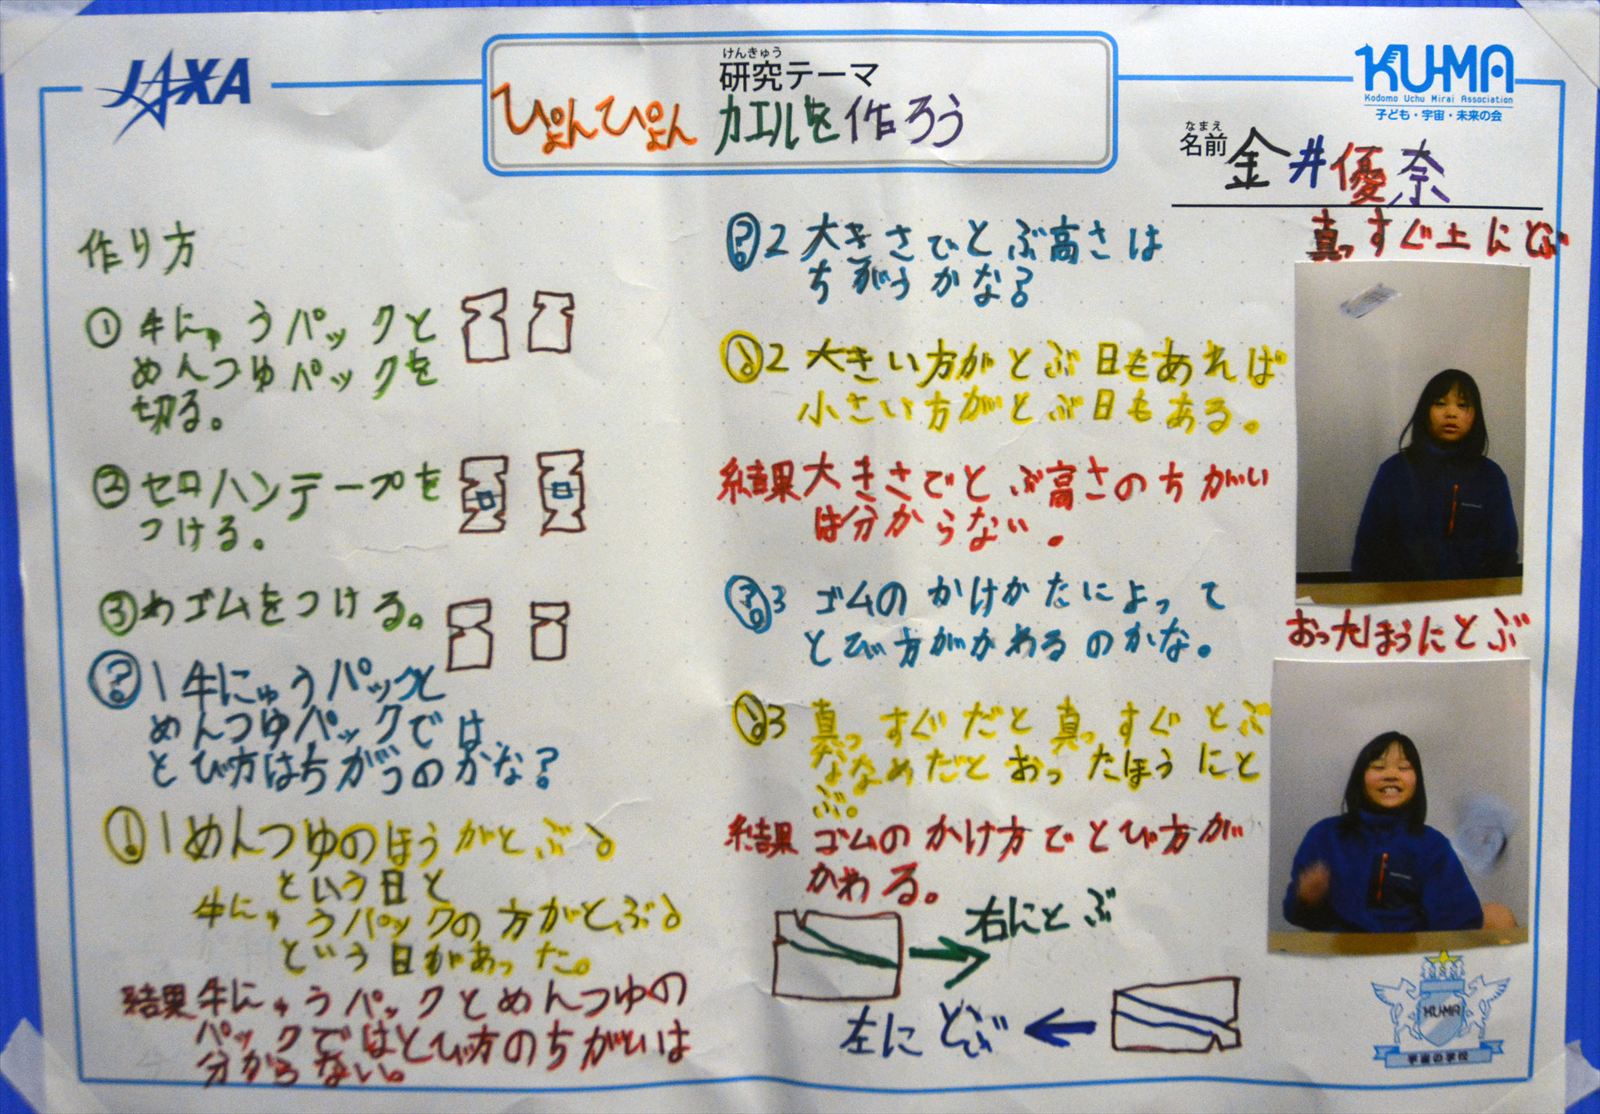 JAXA
けんきゅう
研究テーマ
ぴょんぴょん カエルを作ろう
KUMA
Kodomo Uchu Mirai Association
子ども・宇宙・未来の会
なまえ
名前 金井優奈
作り方
① 牛にゅうパックと
めんつゆパックを
切る。
② セロハンテープを
つける。
③ わゴムをつける。
? 1 牛にゅうパックと
めんつゆパックでは
とび方はちがうのかな?
! 1 めんつゆのほうがとぶ♪
という日と
牛にゅうパックの方がとぶ♪
という日があった。
結果 牛にゅうパックとめんつゆの
パックではとび方のちがいは
分からない。
? 2 大きさでとぶ高さは
ちがうかな?
! 2 大きい方がとぶ日もあれば
小さい方がとぶ日もある。
結果 大きさでとぶ高さのちがい
は分からない。
? 3 ゴムのかけかたによって
とび方がかわるのかな。
! 3 真っすぐだと真っすぐとぶ
ななめだとおったほうにと
ぶ。
結果 ゴムのかけ方でとび方が
かわる。
右にとぶ
左にとぶ
真っすぐ上にとぶ
おったほうにとぶ
KU-MA
宇宙の学校